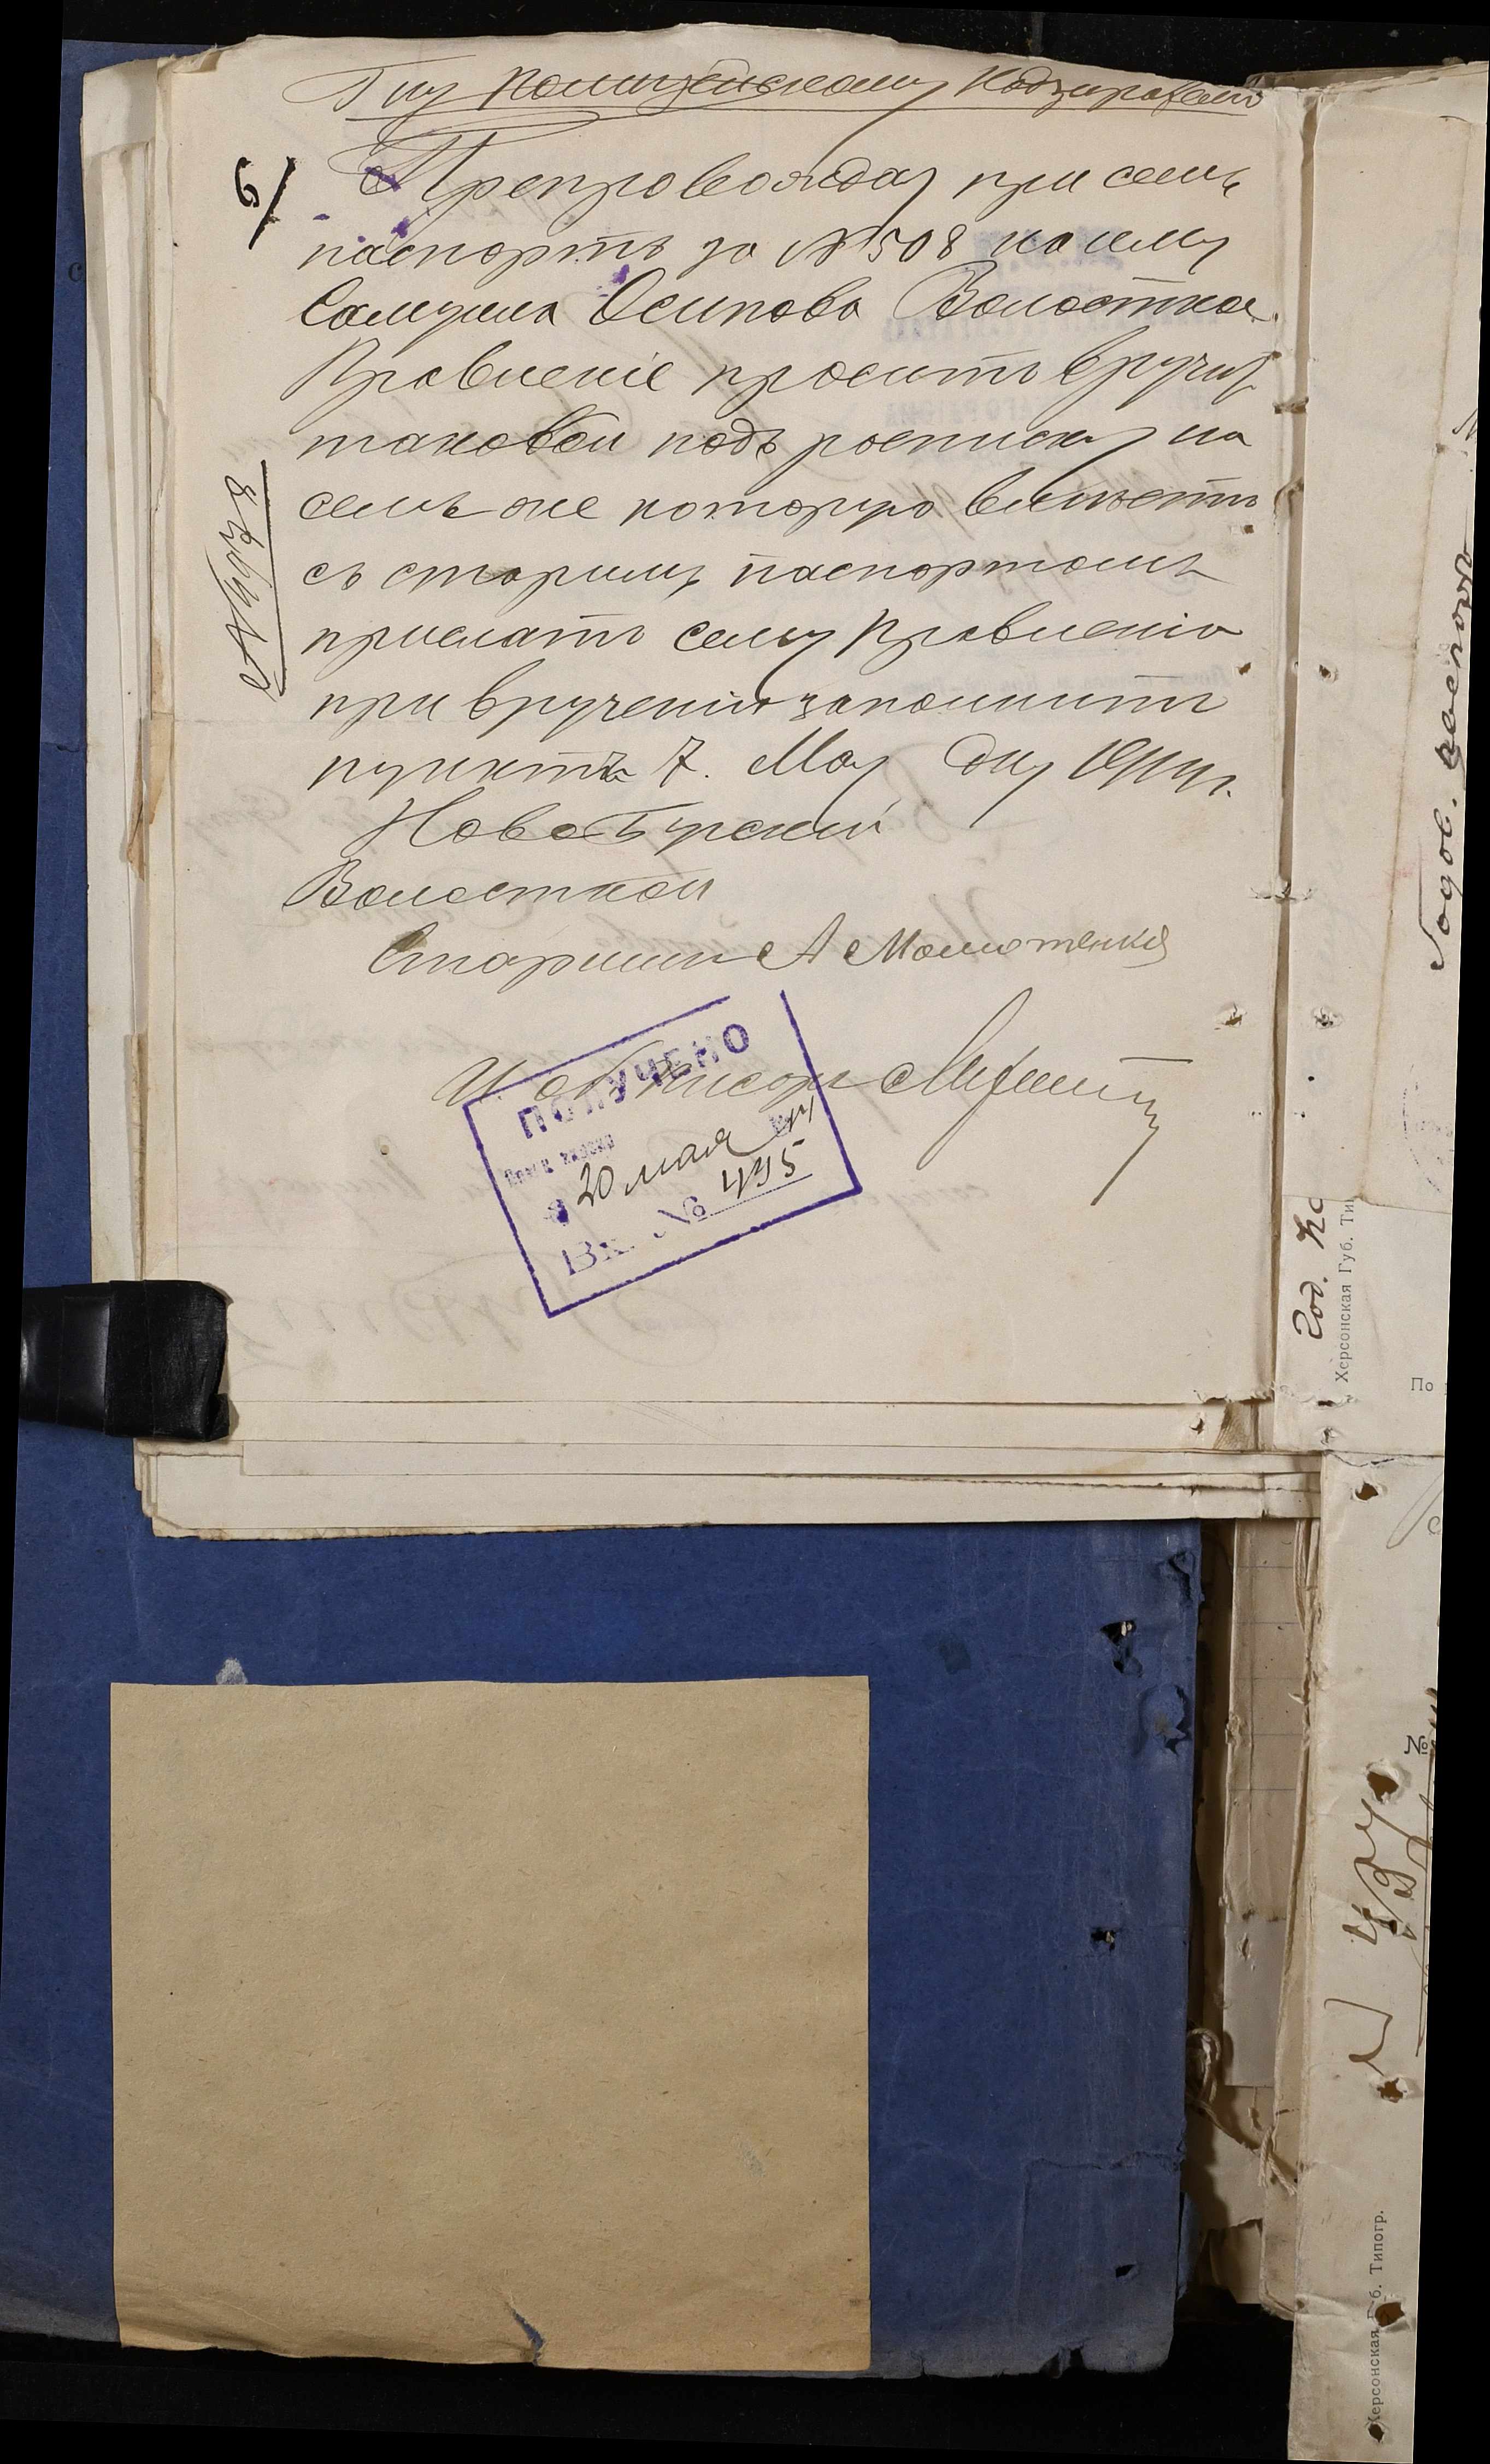 Гну Полицейскому Надзирателю
6/
Препровождая при семъ
паспортъ за № 508 на имя
Осипова Волостное
Правленіе проситъ вручить
таковой подъ росписку на
семъ же которую вместе
съ старымъ паспортомъ
прислать сему Правленію
при врученіи заполнить
пунктъ 7. Мая дня 1914 г.
НовоБугскій
Волостной
Старшина А
И. об. Писаря
ПОЛУЧЕНО
20 мая 14
Вх. № 495
Годов. паспорт
Год.
Херсонская Губ. Ти
По
№
Херсонская Губ. Типогр.